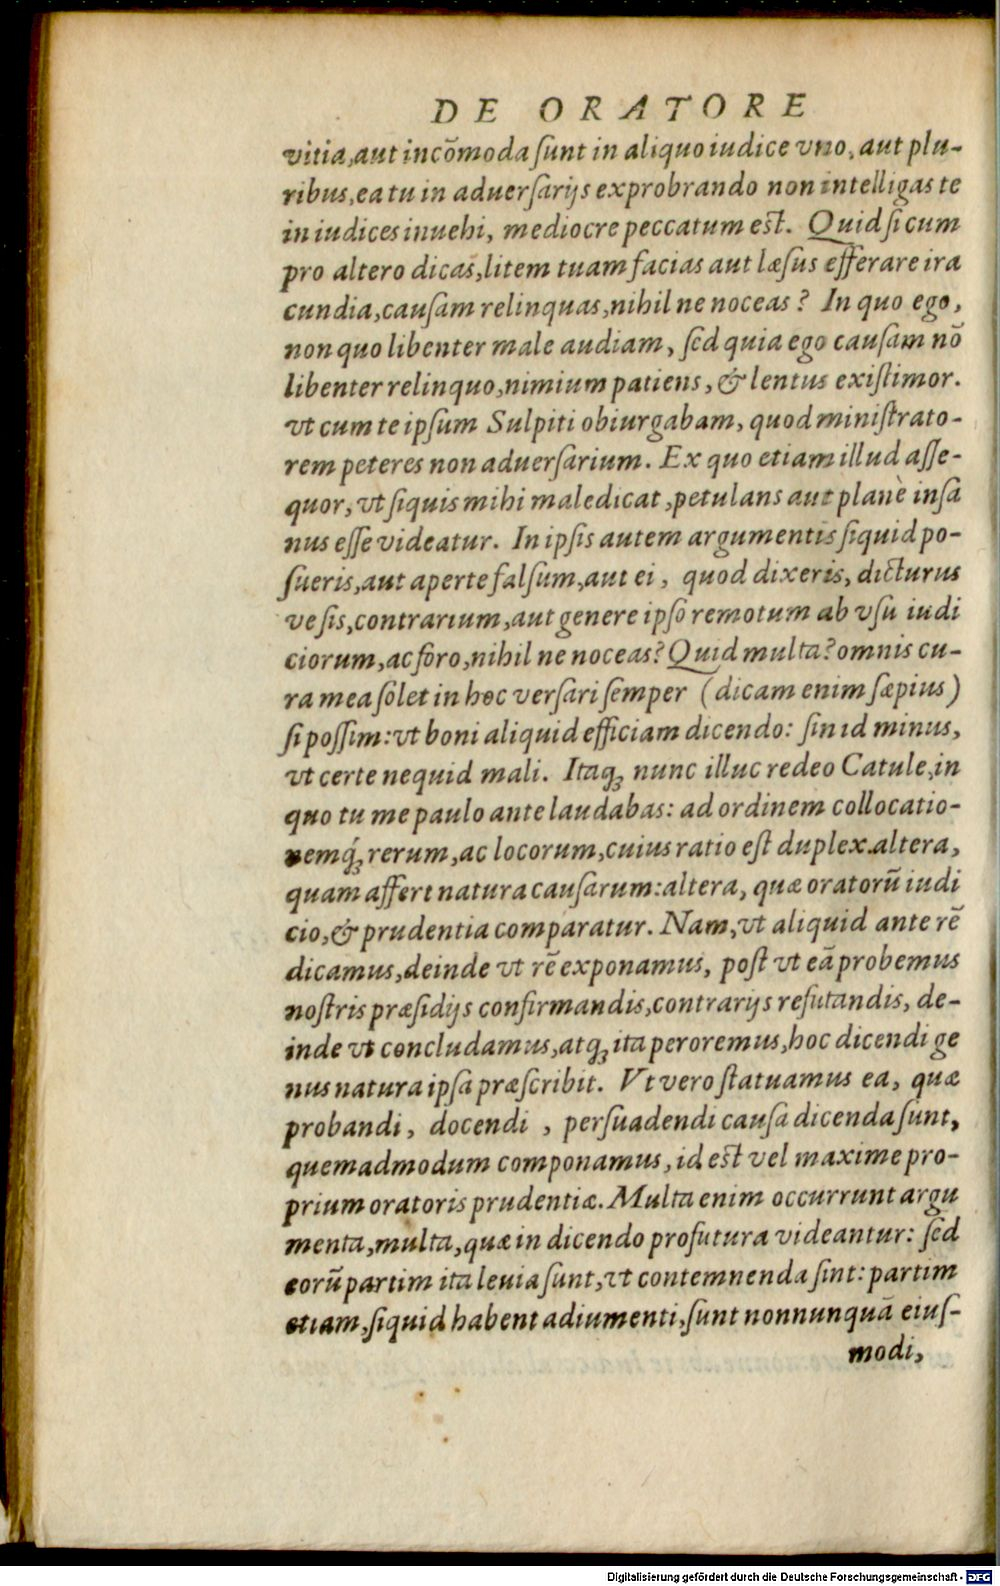 DE ORATORE
vitia, aut incõmoda ſunt in aliquo iudice vno, aut plu-
ribus, ea tu in aduerſarijs exprobrando non intelligas te
in iudices inuehi, mediocre peccatum eſt. Quid ſi cum
pro altero dicas, litem tuam facias aut læſus efferare ira
cundia, cauſam relinquas, nihil ne noceas? In quo ego,
non quo libenter male audiam, ſed quia ego cauſam nõ
libenter relinquo, nimium patiens, & lentus exiſtimor.
vt cum te ipſum Sulpiti obiurgabam, quod miniſtrato-
rem peteres non aduerſarium. Ex quo etiam illud aſſe-
quor, vt ſiquis mihi maledicat, petulans aut planè inſa
nus eſſe videatur. In ipſis autem argumentis ſiquid po-
ſueris, aut aperte falſum, aut ei, quod dixeris, dicturus
ve ſis, contrarium, aut genere ipſo remotum ab vſu iudi
ciorum, ac foro, nihil ne noceas? Quid multa? omnis cu-
ra mea ſolet in hoc verſari ſemper (dicam enim ſæpius)
ſi poſſim: vt boni aliquid efficiam dicendo: ſin id minus,
vt certe nequid mali. Itaqꝫ nunc illuc redeo Catule, in
quo tu me paulo ante laudabas: ad ordinem collocatio-
nemqꝫ́ rerum, ac locorum, cuius ratio eſt duplex. altera,
quam affert natura cauſarum: altera, quæ oratorũ iudi
cio, & prudentia comparatur. Nam, vt aliquid ante rẽ
dicamus, deinde vt rẽ exponamus, poſt vt eã probemus
noſtris præſidijs confirmandis, contrarijs refutandis, de-
inde vt concludamus, atqꝫ ita peroremus, hoc dicendi ge
nus natura ipſa præſcribit. Vt vero ſtatuamus ea, quæ
probandi, docendi, perſuadendi cauſa dicenda ſunt,
quemadmodum componamus, id eſt vel maxime pro-
prium oratoris prudentiæ. Multa enim occurrunt argu
menta, multa, quæ in dicendo profutura videantur: ſed
eorũ partim ita leuia ſunt, vt contemnenda ſint: partim
etiam, ſiquid habent adiumenti, ſunt nonnunquã eiuſ-
modi,
Digitalisierung gefördert durch die Deutsche Forschungsgemeinschaft - DFG